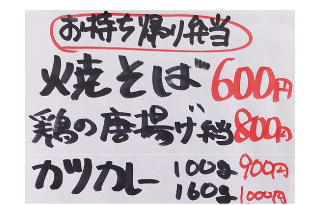 お持ち帰り弁当
焼そば 600円
鶏の唐揚げ弁当 800円
カツカレー 100g 900円
160g 1000円